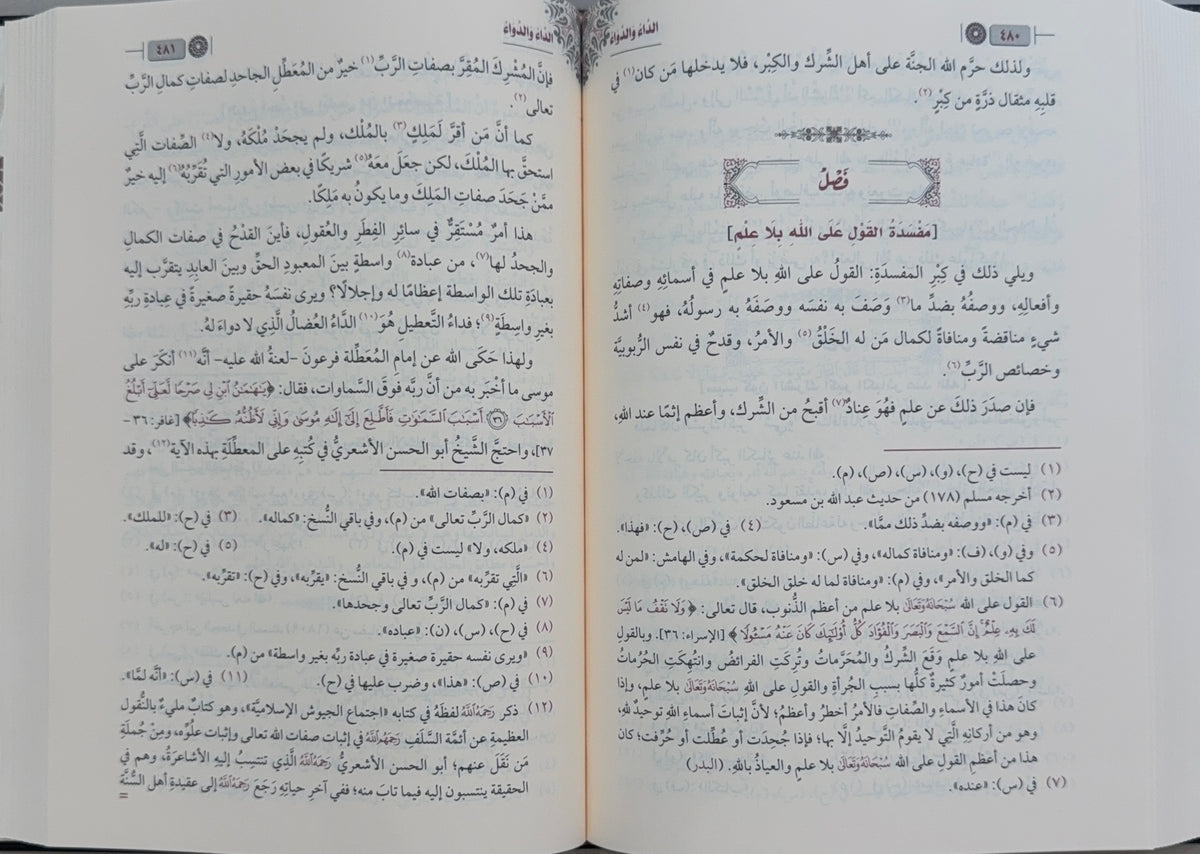 الدّاءُ والدّواءُ
٤٨٠
ولذلك حرَّم الله الجنَّة على أهل الشِّرك والكِبْر، فلا يدخلها مَن كان(١) في
قلبِهِ مثقال ذرَّةٍ من كِبْرٍ(٢).
فَصْلٌ
[مَفْسَدَةُ القَوْلِ عَلَى اللهِ بِلَا عِلْمٍ]
ويلي ذلك في كِبَرِ المفسدَةِ: القولُ على اللهِ بلا علمٍ في أسمائِهِ وصفاتِهِ
وأفعالِهِ، ووصفُهُ بضدِّ ما(٣) وَصَفَ به نفسَه ووصَفَهُ به رسولُهُ، فهو(٤) أشدُّ
شيءٍ مناقضةً ومنافاةً لكمال مَن له الخَلْقُ(٥) والأمرُ، وقدحٌ في نفس الرُّبوبيَّة
وخصائص الرَّبِّ(٦).
فإن صدَرَ ذلكَ عن علمٍ فهُوَ عِنادٌ(٧) أقبحُ من الشِّرك، وأعظم إثمًا عند اللهِ،
(١) ليست في (ح)، (و)، (س)، (ص)، (م).
(٢) أخرجه مسلم (١٧٨) من حديث عبد الله بن مسعود.
(٣) في (م): «ووصفه بضدِّ ذلك ممَّا». (٤) في (ص)، (ح): «فهذا».
(٥) وفي (و)، (ف): «ومنافاة كماله»، وفي (س): «ومنافاة لحكمة»، وفي الهامش: «لمن له
كما الخلق والأمر»، وفي (م): «ومنافاة لما له خلق الخلق».
(٦) القول على الله سُبْحَانَهُوَتَعَالَى بلا علم من أعظم الذُّنوب، قال تعالى: ﴿وَلَا تَقْفُ مَا لَيْسَ
لَكَ بِهِۦ عِلْمٌ ۚ إِنَّ ٱلسَّمْعَ وَٱلْبَصَرَ وَٱلْفُؤَادَ كُلُّ أُو۟لَـٰٓئِكَ كَانَ عَنْهُ مَسْـُٔولًا﴾ [الإسراء: ٣٦]. وبالقولِ
على اللهِ بلا علمٍ وَقَعَ الشِّركُ والمُحَرَّمات وتُرِكَتِ الفرائضُ وانتُهِكَتِ الحُرُماتُ
وحصلَتْ أمورٌ كثيرةٌ كلُّها بسببِ الجُرأةِ والقولِ على اللهِ سُبْحَانَهُوَتَعَالَى بلا علمٍ، وإذا
كان هذا في الأسماءِ والصِّفاتِ فالأمرُ أخطرُ وأعظمُ؛ لأنَّ إثباتَ أسماءِ اللهِ توحيدٌ للهِ،
وهو من أركانِهِ الَّتي لا يقومُ التَّوحيدُ إلَّا بها؛ فإذا جُحدَت أو عُطِّلت أو حُرِّفت؛ كانَ
هذا من أعظمِ القولِ على اللهِ سُبْحَانَهُوَتَعَالَى بلا علمٍ والعياذُ باللهِ. (البدر)
(٧) في (س): «عنده».
الدّاءُ والدّواءُ
٤٨١
فإنَّ المُشْرِكَ المُقِرَّ بصفاتِ الرَّبِّ(١) خيرٌ من المُعَطِّلِ الجاحدِ لصفاتِ كمالِ الرَّبِّ
تعالى(٢).
كما أنَّ مَن أقرَّ لمَلِكٍ(٣) بالمُلْك، ولم يجحَدْ مُلْكَهُ، ولا(٤) الصِّفات الَّتي
استحقَّ بها المُلْكَ، لكن جعَلَ معَهُ(٥) شريكًا في بعض الأمورِ التي تُقَرِّبُهُ(٦) إليه خيرٌ
ممَّنْ جَحَدَ صفاتِ المَلِكَ وما يكونُ به مَلِكًا.
هذا أمرٌ مُسْتَقِرٌّ في سائِرِ الفِطَرِ والعُقولِ، فأينَ القدْحُ في صفات الكمالِ
والجحدُ لها(٧)، من عبادة(٨) واسطةٍ بينَ المعبودِ الحقِّ وبينَ العابِدِ يتقرَّب إليه
بعبادَةِ تلك الواسطة إعظامًا له وإجلالًا؟ ويرى نفسَهُ حقيرةً صغيرةً في عِبادةِ ربِّهِ
بغيرِ واسِطَةٍ(٩)؛ فداءُ التَّعطيلِ هُوَ(١٠) الدَّاءُ العُضالُ الَّذي لا دواءَ لهُ.
ولهذا حَكَى الله عن إمامِ المُعَطِّلة فرعونَ -لعنةُ الله عليه- أنَّه(١١) أنكَرَ على
موسى ما أخْبَر به من أنَّ ربَّه فوقَ السَّماوات، فقال: ﴿يَـٰهَـٰمَـٰنُ ٱبْنِ لِى صَرْحًا لَّعَلِّىٓ أَبْلُغُ
ٱلْأَسْبَـٰبَ ۝٣٦ أَسْبَـٰبَ ٱلسَّمَـٰوَٰتِ فَأَطَّلِعَ إِلَىٰٓ إِلَـٰهِ مُوسَىٰ وَإِنِّى لَأَظُنُّهُۥ كَـٰذِبًا﴾ [غافر: ٣٦-
٣٧]، واحتجَّ الشَّيخُ أبو الحسن الأشعريُّ في كُتبِهِ على المعطِّلَة بهذه الآية(١٢)، وقد
(١) في (م): «بصفات الله».
(٢) «كمال الرَّبِّ تعالى» من (م)، وفي باقي النُّسخ: «كماله». (٣) في (ح): «للملك».
(٤) «ملكه، ولا» ليست في (م). (٥) في (ح): «له».
(٦) «الَّتي تقرِّبه» من (م)، و في باقي النُّسخ: «يقرِّبه»، وفي (ح): «تقربه».
(٧) في (م): «كمال الرَّبِّ تعالى وجحدها».
(٨) في (ح)، (س)، (ن): «عباده».
(٩) «ويرى نفسه حقيرة صغيرة في عبادة ربِّه بغير واسطة» من (م).
(١٠) في (ص): «هذا»، وضرب عليها في (ح). (١١) في (س): «أنَّه لمَّا».
(١٢) ذكر رَحِمَهُ اللَّهُ لفظهُ في كتابه «اجتماع الجيوش الإسلاميَّة»، وهو كتابٌ مليءٌ بالنُّقول
العظيمةِ عن أئمَّة السَّلَفِ رَحِمَهُمُ اللَّهُ في إثبات صفات الله تعالى وإثبات علُوِّه، ومِنْ جُملَةِ
مَن نَقَلَ عنهم؛ أبو الحسن الأشعريُّ رَحِمَهُ اللَّهُ الَّذي تنتسِبُ إليه الأشاعرَةُ، وهم في
الحقيقة ينتسبون إليه فيما تابَ منه؛ ففي آخرِ حياتِهِ رَجَعَ رَحِمَهُ اللَّهُ إلى عقيدةِ أهل السُّنَّة
=